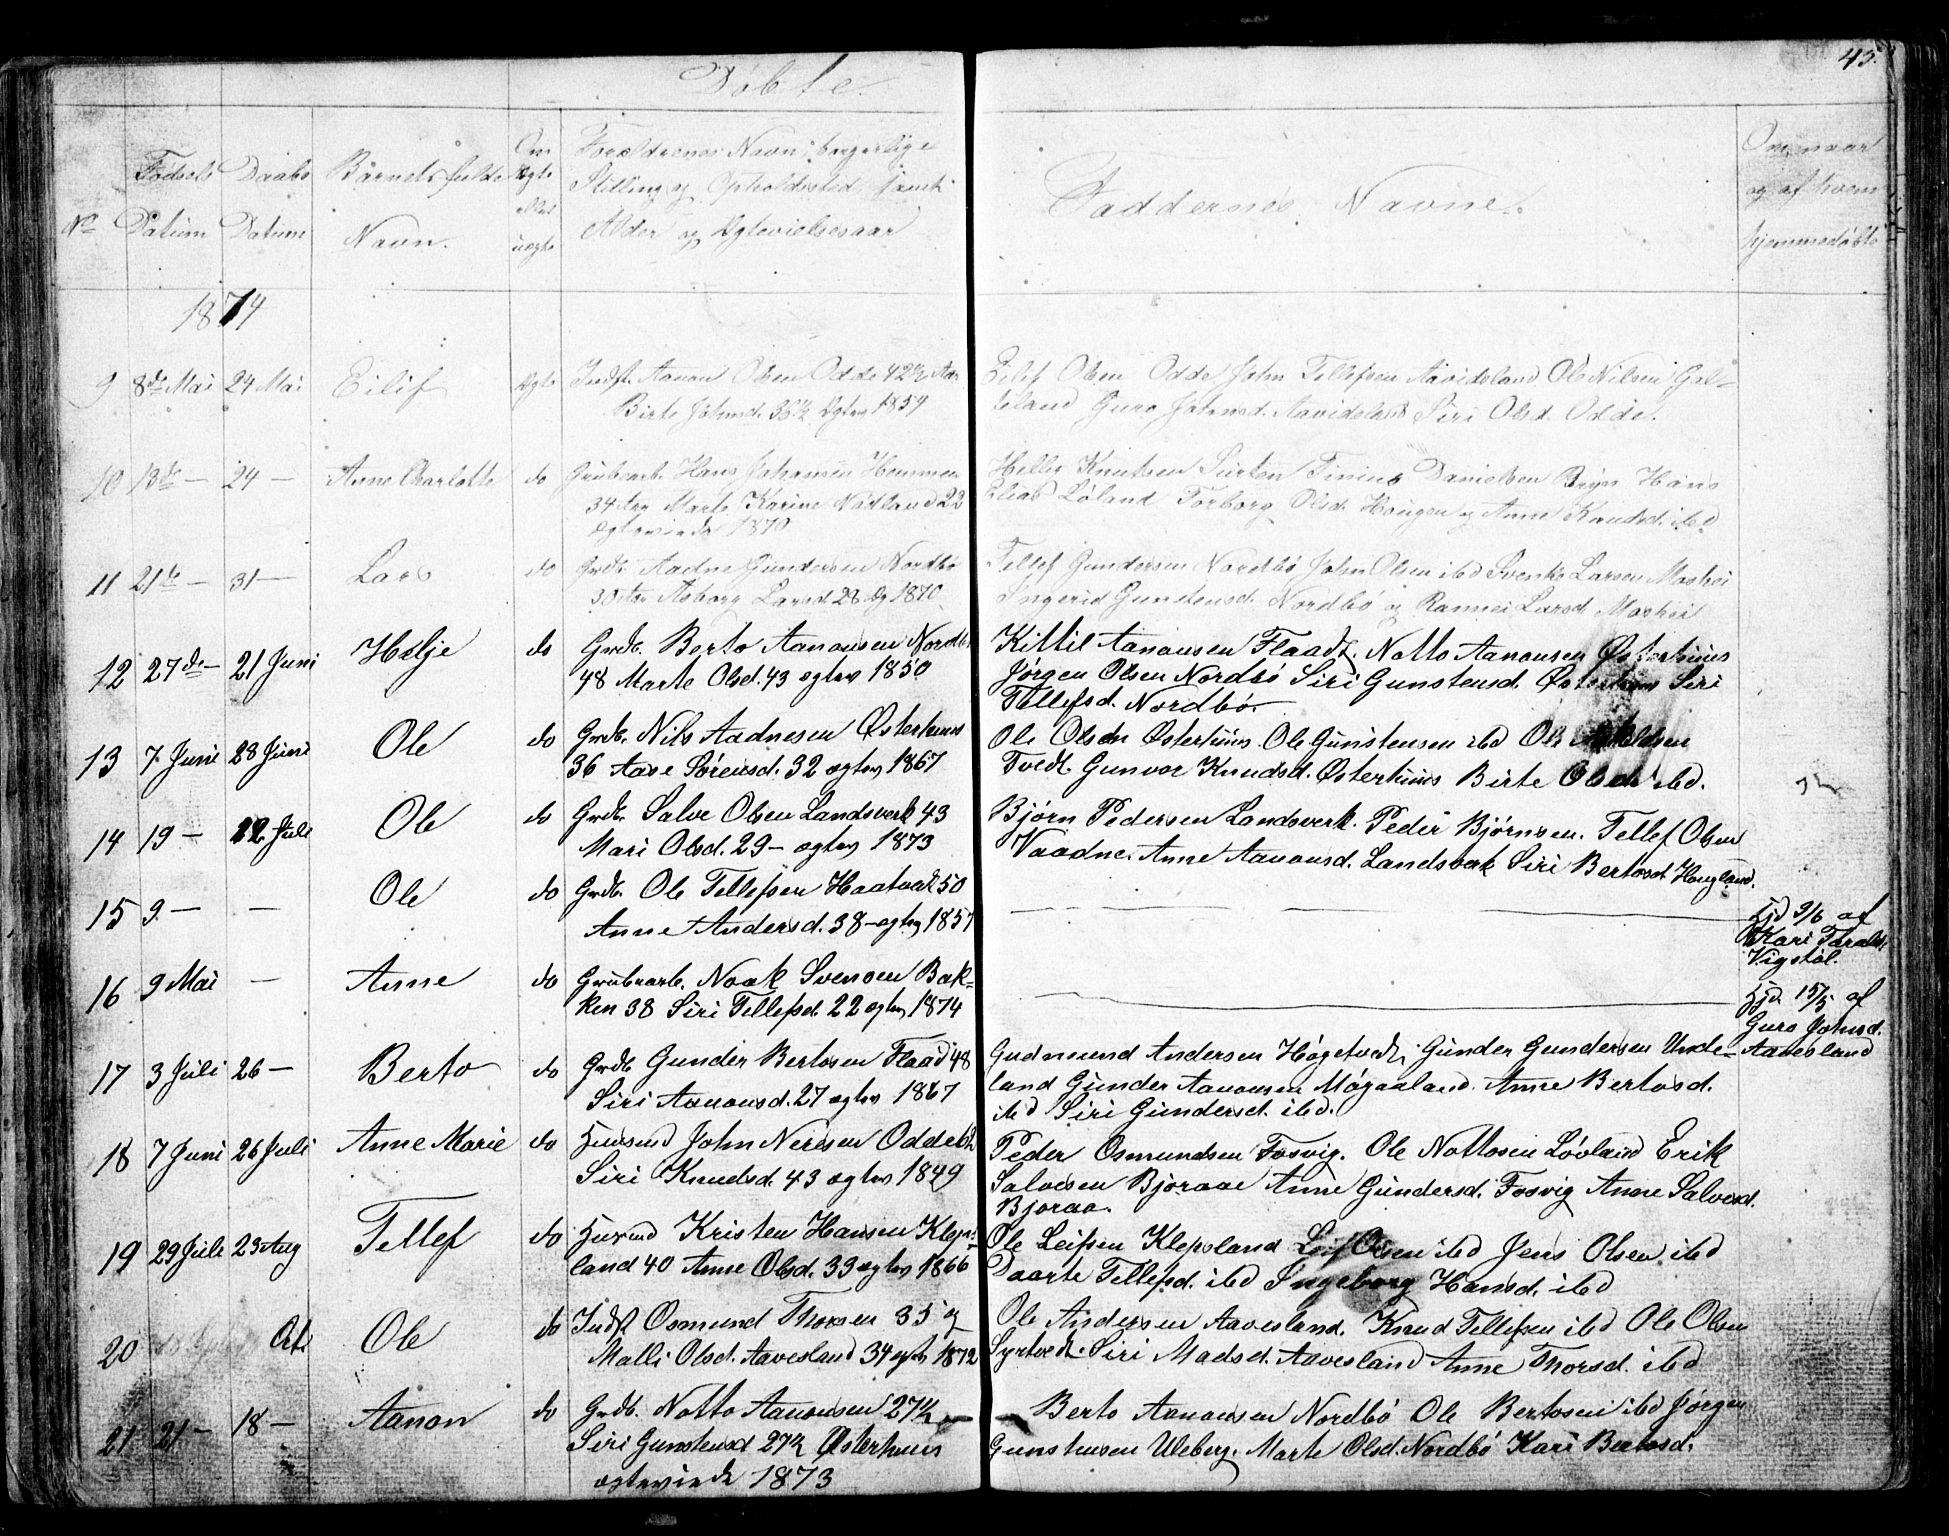 Døbte
45.
No
Fødsels Datum
Daabs Datum
Barnets fulde Navn.
Om ægte eller uægte
Forældrenes Navn, borgerlige
Stilling og Opholdssted samt
Alder og Ægtevielsesaar
Faddernes Navne.
Om, naar
og af hvem
hjemmedøbte
1874
9 8de Mai 24 Mai Eilif ægte Indst. Aanon Olsen Odde 42½ Aar
Birte Johnsd. 36½ ægtev 1859
Eilif Olsen Odde John Tellefsen Aavidsland Ole Nilsen
Guro Johnsd. Aavidsland Siri Olsd. Odde.
10 13de — 24 — Anne Charlotte do Grubearb. Hans Johansen Hommen
34 Aar Marte Karine Nadland 22
ægteviede 1870
Helleg Knutsen Tinius Danielsen Bryn Hans
Elias Løland Torborg Olsd. Hougen og Anne Knudsd. ibd
11 21de — 31 — Lars do Grdb. Aadne Gundersen Nordbø
30 Aar Asborg Larsd 28 Æg 1870
Tellef Gundersen Nordbø John Olsen ibd Svenke Larsen Moshei
Ingerid Gunstensd. Nordbø og Rannei Larsd. Moshei
12 27de — 21 Juni Helje do Grdb. Berto Aanonsen Nordbø
48 Marte Olsd. 43 ægtev 1850
Kittil Aanonsen Flaad. Notto Aanonsen Østerhuus
Jørgen Olsen Nordbø Siri Gunstensd. Østerhuus Siri
Tellefsd. Nordbø.
13 7. Juni 28 Juni Ole do Grdb. Nils Aadnesen Østerhuus
36 Aase Sørensd. 32 ægtev 1867
Ole Olsen Østerhuus. Ole Gunstensen ibd Ole
Tvedt. Gunvor Knudsd. Østerhuus Birte Olsd. ibd.
14 19 — 12 Juli Ole do Grdb. Salve Olsen Landsverk 43
Mari Olsd. 29 — ægtev 1873
Bjørn Pedersen Landsverk. Peder Bjørnsen. Tellef Olsen
Vaadne. Anne Aanonsd. Landsverk Siri Bertosd. Hougland.
15 9 — — Ole do Grdb. Ole Tellefsen Haatvedt 50
Anne Andersd. 38 — ægtev 1857
Hjd 9/6 af
Kari Taralds.
Vigstøl.
16 9 Mai — Anne do Grubearb. Noak Svensen Bak-
ken 38 Siri Tellefsd. 22 ægtev 1874
Hjd. 15/5 af
Guro Johnsd.
Aavesland
17 3 Juli 26 — Berto do Grdb. Gunder Bertosen Flaad 48
Siri Aanonsd. 27 ægtev 1867
Gudmund Andersen Høgetvedt, Gunder Gundersen Unde-
land Gunder Aanonsen Møgaaland. Anne Bertosd.
ibd Siri Gundersd. ibd.
18 7 Juni 26 Juli Anne Marie do Huusmd John Nersen Odde
Siri Knudsd. 43 ægtev 1849
Peder Osmundsen Fosvig. Ole Nottosen Løvland Erik
Salvesen Bjoraae Anne Gundersd. Fosvig Anne Salvesd.
Bjoraa.
19 29 Juli 23 Aug Tellef do Husmd Kristen Hansen Kleps-
land 40 Anne Olsd. 33 ægtev 1866
Ole Leifsen Klepsland Leif Olsen ibd Jens Olsen ibd
Daarte Tellefsd. ibd Ingeborg Hansd. ibd
20 Ole do Indst Osmund Thorsen 35 og
Malli Olsd. Aavesland 34 ægtev 1872
Ole Andersen Aavesland. Knud Tellefsen ibd Ole Olsen
Syrtvedt. Siri Madsd. Aavesland Anne Thorsd. ibd
21 21 — 18 — Aanon do Grdb. Notto Aanonsen 27½
Siri Gunstensd 27½ Østerhuus
ægteviede 1873
Berto Aanonsen Nordbø Ole Bertosen ibd Jørgen
Gunstensen Uleberg. Marte Olsd. Nordbø Kari Bertosd.